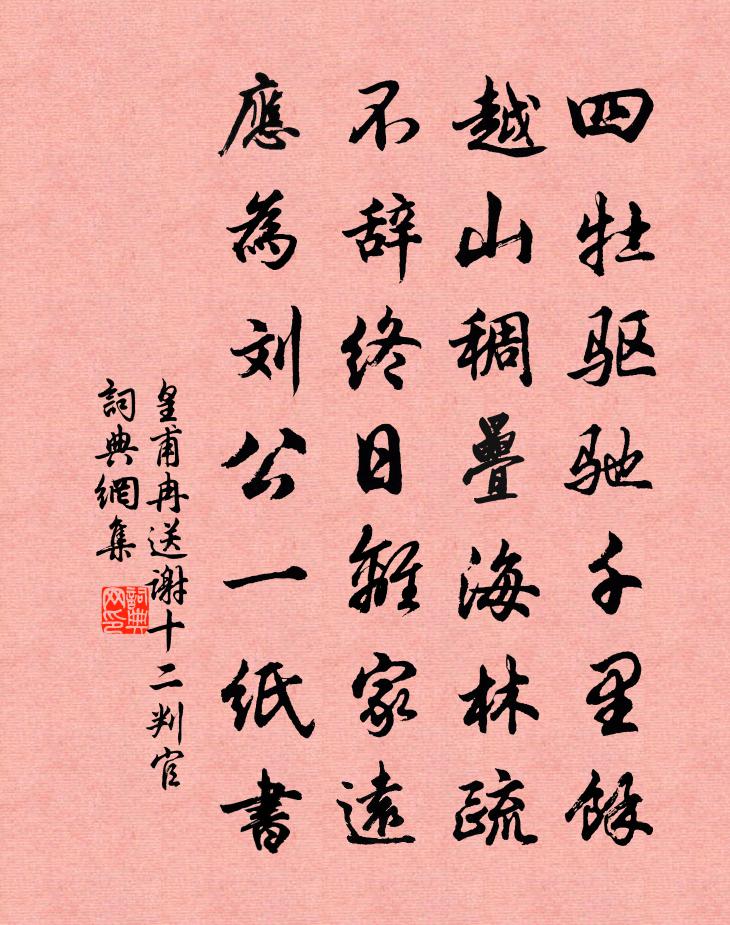 四牡驱驰千里餘
越山稠疊海林疏
不辞终日離家遠
應為刘公一纸書
皇甫冉送谢十二判官
詞典網集
詞典网印